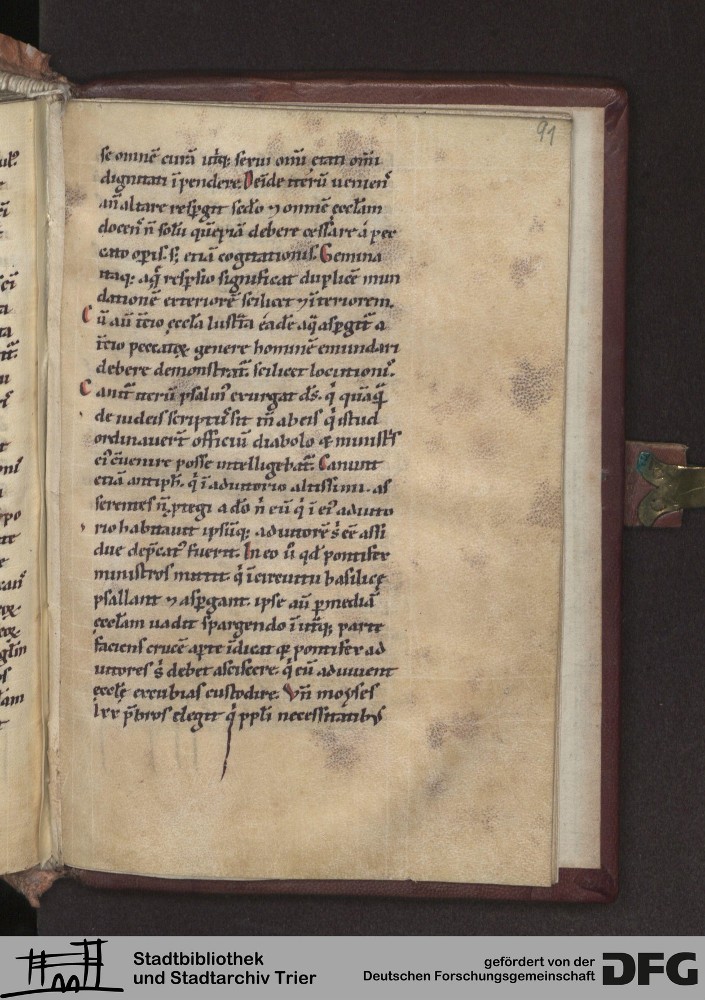 91
se omnē curā utiq; serui omī etati omī
dignitati īpendere. Deīde iterū ueniens
añ altare resp̱git sed̄o ⁊ omnē eccłam
docens ñ solū quēpiā debere cessare á pec
cato op̱is. s; etiā cogitationis. Gemina
itaq; aq̄ resp̱sio significat duplicē mun
dationē exteriorē scilicet ⁊ īteriorem.
C ū aū īcio ęccła lustr̄ta eádē aq̄ asp̱git a
īcio peccatoꝝ genere hominē emundari
debere demonstrat̄. scilicet locutionis.
C anit̄ iterū psalm̄ exurgat d̄s. q̇ quāq̄
de iudeis scriptus sit m̄ ab eis q̇ istud
ordinauer̄t officiū diabolo & ministris
ei' cūenire posse intelligebat̄. Canunt
etiā antiph̄. q̇ ī adiutorio altissimi. as
serentes ñ p̱tegi a d̄o ñ eū q̇ ī ei' adiuto
rio habitauit ipsūq; adiutorē s̄ eē assi
due dep̱cat' fuerit. In eo ū qd̄ pontifex
ministros mittit. q̇ ī circuitu basilicę
psallant ⁊ asp̱gant. ipse aū p̱ mediā
ęccłam uadit spargendo ī utq̄; parte
faciens crucē apte īdicat q̄ pontifex ad
iutores s̄ debet asciscere. q̇ eū adiuuent
ęcclę excubias custodire. Vñ moyses
lxx p̄bros elegit q̇ ppłi necessitatibus
Stadtbibliothek
und Stadtarchiv Trier
gefördert von der
Deutschen Forschungsgemeinschaft
DFG